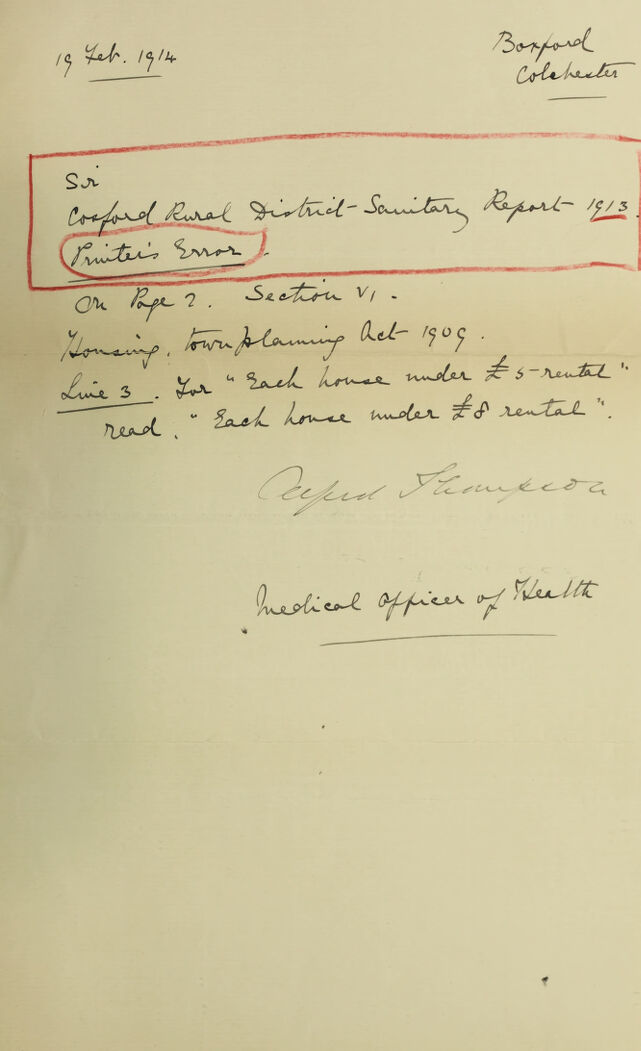 19 Feb. 1914
Boxford
Colchester
Sir
Cosford Rural District Sanitary Report 1913.
Printer's Error.
On Page 2. Section VI.
Housing, town planning Act 1909.
Line 3. For "Each house under £5 rental"
read. "Each house under £8 rental".
Alfred Thompson
Medical Officer of Health